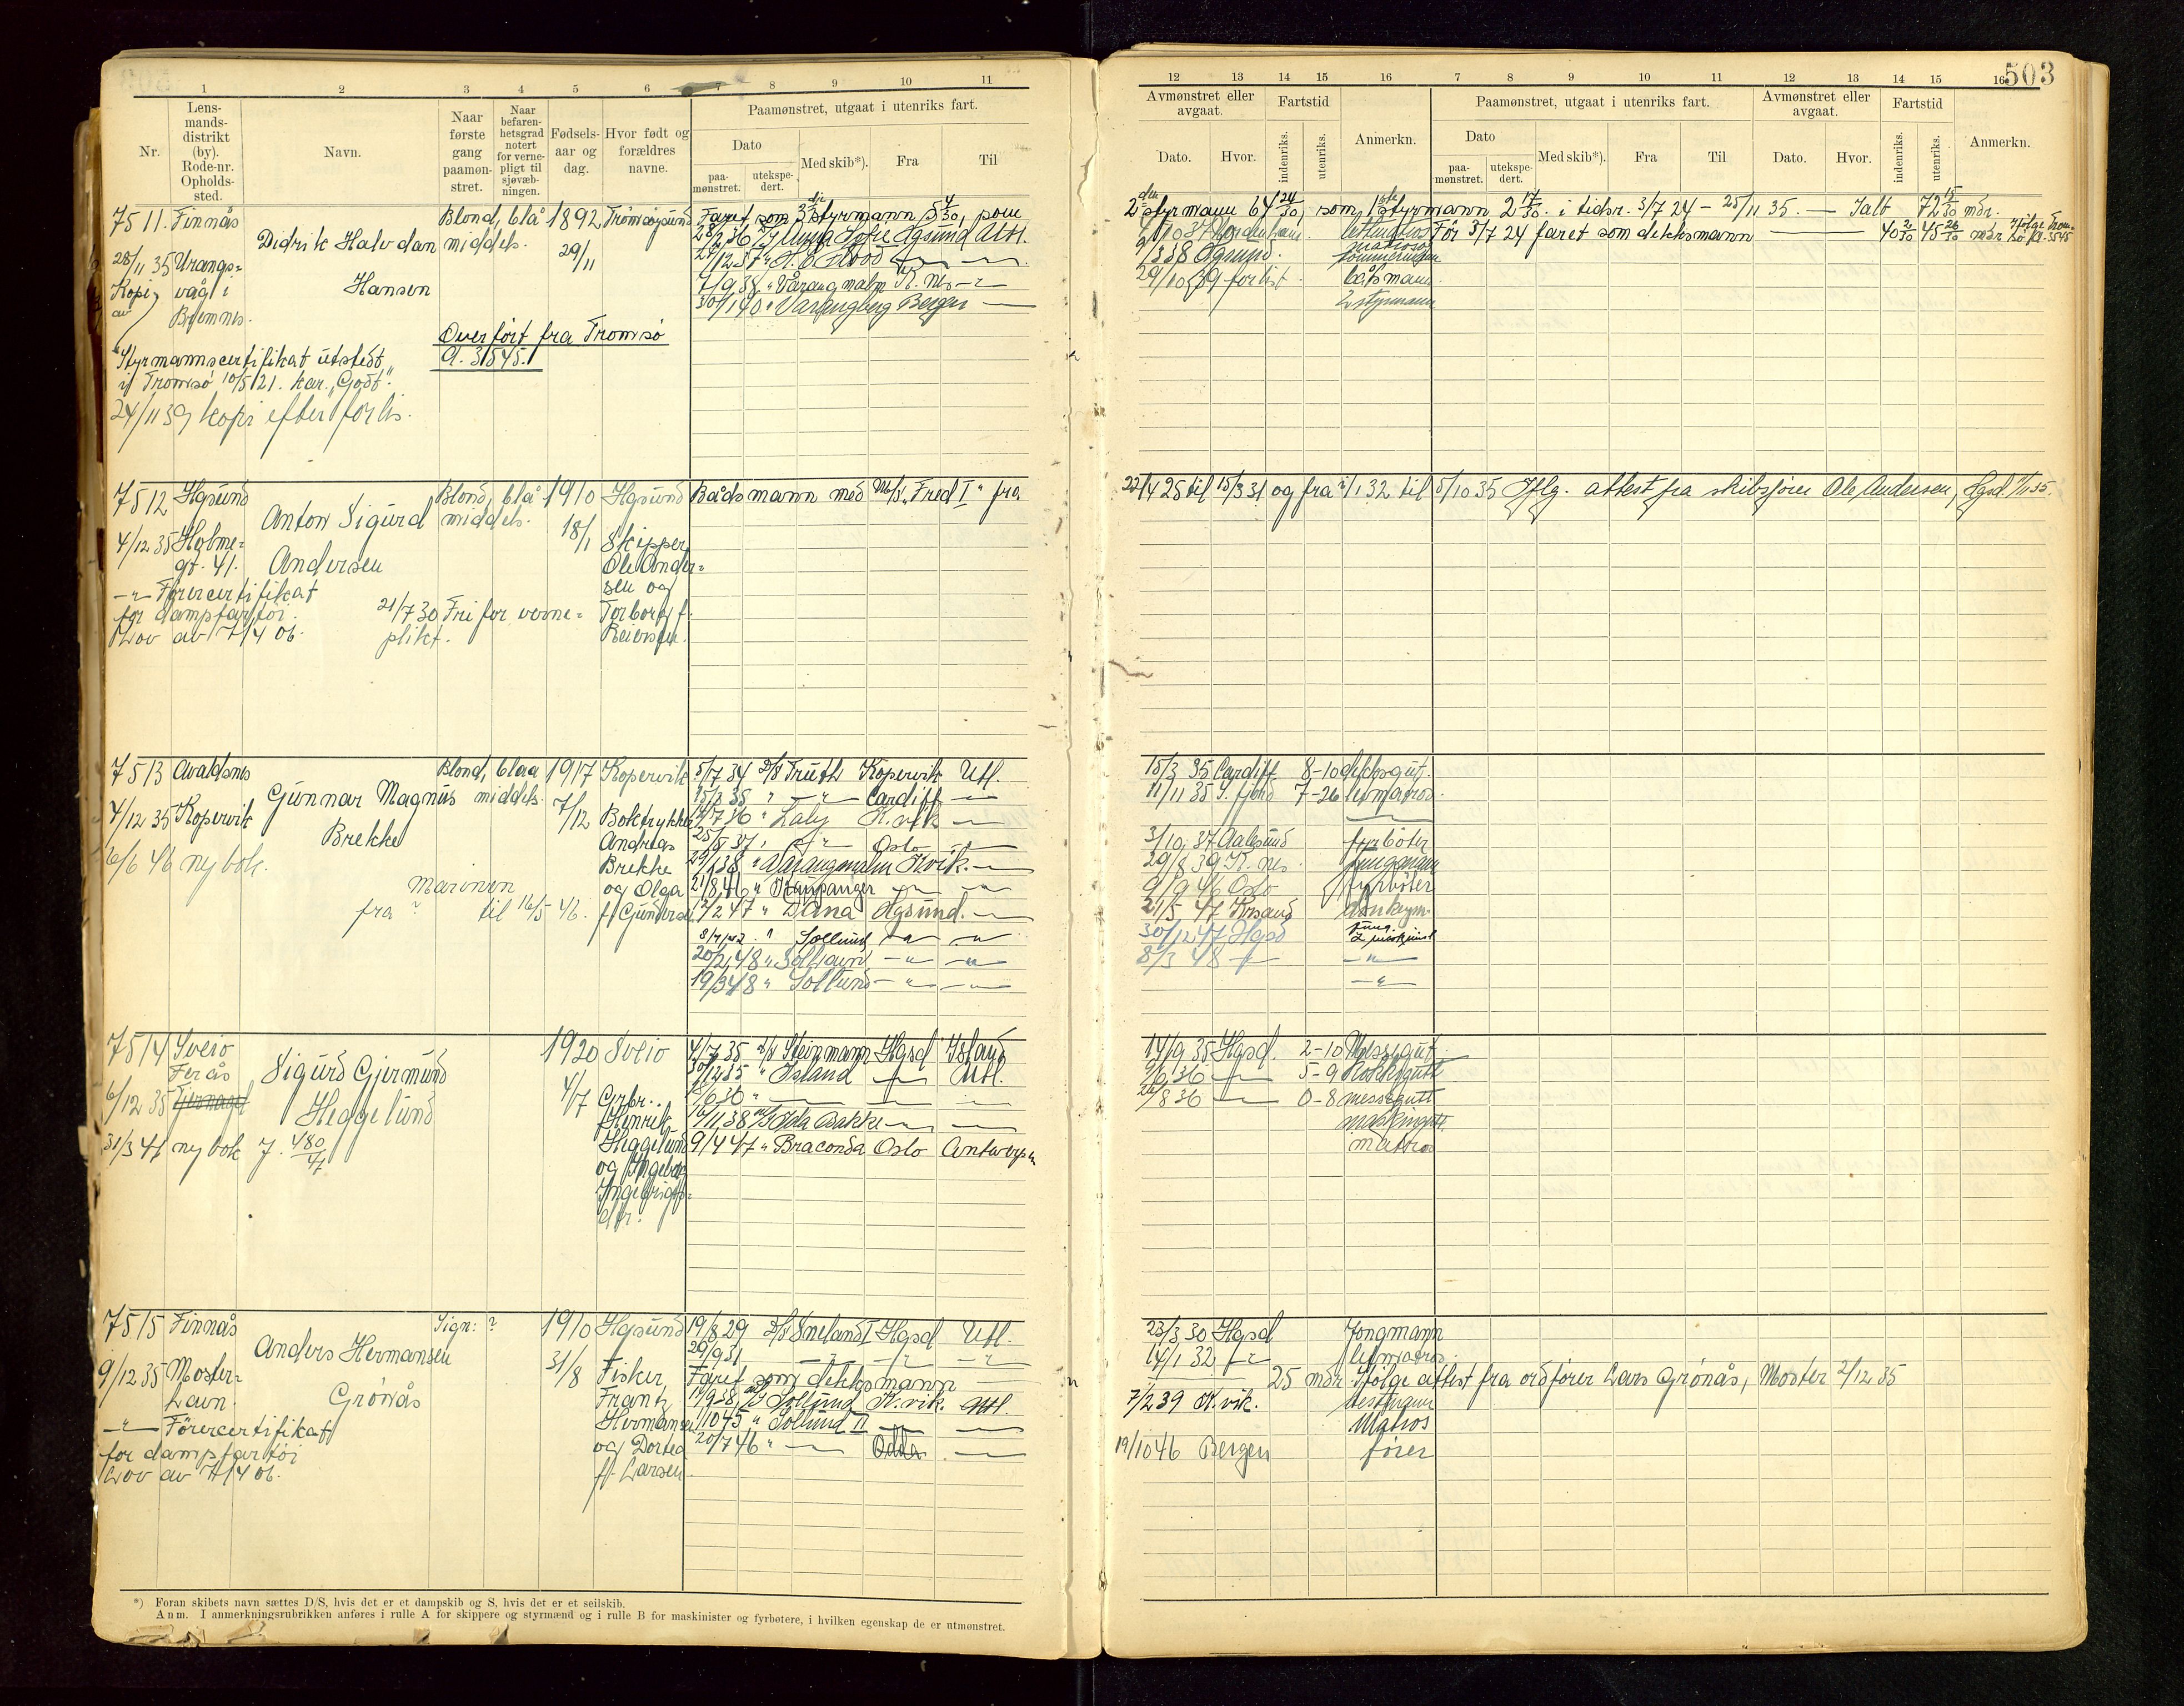 503
1 2 3 4 5 6 7 8 9 10 11
Nr.
Lens-
mands-
distrikt
(by).
Rode-nr.
Opholds-
sted.
Navn.
Naar
første
gang
paamøn-
stret.
Naar
befaren-
hetsgrad
notert
for verne-
pligt til
sjøvæb-
ningen.
Fødsels-
aar og
dag.
Hvor født og
forældres
navne.
Paamønstret, utgaat i utenriks fart.
Dato
paa-
mønstret.
utekspe-
dert.
Med skib*).
Fra
Til
7511. Finnås Blond, blå 1892 Tromøysund
Didrik Halvdan middels. 29/11
28/11 35 Urangs-
Kopi våg i Hansen
av Bremnes.
Overført fra Tromsø
A. 3545.
Styrmannscertifikat utstedt
i Tromsø 10/5 21. kar. "Godt".
24/11 39 kopi efter forlis.
Faret som styrmann 5 4/30, som
Anna Sofie Hgsund Utl.
7/9 38 " Varangmalm K. nes
30/1 40 " Varangberg Bergen
7512 Hgsund Blond, blå 1910 Hgsund
Anton Sigurd middels.
4/12 35 Holme- 18/1 Skipper
gt. 41. Andersen Ole Ander-
sen og
Førercertifikat Torborg f.
for dampfartøi. 21/7 30 Fri for verne- Reiersen.
Lov av 17/4 06. plikt.
Bådsmann med M/S "Fred I" fra
7513 Avaldsnes Blond, blaa 1917 Kopervik
Gunnar Magnus middels. 7/12
4/12 35 Kopervik Boktrykker
Brekke Andreas
6/6 46 ny bok. Brekke
Marinen og Olga
fra ? til 16/5 46. f. Gundersen
5/7 34 D/S Truth Kopervik Utl.
15/3 35 " Cardiff
" Laly K.vik
Oslo
29/1 38 " Varangmalm K.vik.
21/8 46 " Kaupanger
12/2 47 " Dana Hgsund.
" Sollund
20/2 48 " Sollund
19/3 48 " Sollund
7514 Sveio 1920 Sveio
Ferås Sigurd Gjermund
6/12 35 Tjernagel 4/7 Grbr.
Heggelund Henrik
31/3 47 ny bok J. 480/47 Heggelund
og Ingeborg
Ingebrigts-
dtr.
4/7 35 D/S Steinmann Hgsd Island
" Island Utl.
16/11 38 M/S Ida Bakke
9/4 47 " Braconda Oslo Antwerpen
7515 Finnås Sign: ? 1910 Hgsund
Anders Hermansen
9/12 35 Moster- 31/8 Fisker
havn. Grønås Frantz
Hermansen
Førercertifikat og Dortea
for dampfartøi f. Larsen.
Lov av 17/4 06.
19/8 29 D/S Sneland I Hgsd Utl.
29/9 31
Faret som dekksmann
D/S Sollund K.vik. Utl.
1/10 45 " Sollund II
20/7 46 " Odda
*) Foran skibets navn sættes D/S, hvis det er et dampskib og S, hvis det er et seilskib.
Anm. I anmerkningsrubrikken anføres i rulle A for skippere og styrmænd og i rulle B for maskinister og fyrbøtere, i hvilken egenskap de er utmønstret.
12 13 14 15 16 7 8 9 10 11 12 13 14 15 16
Avmønstret eller
avgaat.
Dato.
Hvor.
Fartstid
indenriks.
utenriks.
Anmerkn.
Paamønstret, utgaat i utenriks fart.
Dato
paa-
mønstret.
utekspe-
dert.
Med skib*).
Fra
Til
Avmønstret eller
avgaat.
Dato.
Hvor.
Fartstid
indenriks.
utenriks.
Anmerkn.
2 den styrmann 64 24/30, som 1ste styrmann 2 17/30. i tidsr. 3/7 24 - 25/11 35. — Ialt 72 15/30 mdr.
lettmatros Før 3/7 24 faret som dekksmann — 40 2/30 45 26/30 mdr
Hgsund.
29/10 39 forlist. båtsmann
2 styrmann
22/4 25 til 15/3 31 og fra 2/1 32 til 5/10 35 Iflg. attest fra skibsfører Ole Andersen, Hgsd.
15/3 35 Cardiff 8-10 dekksgut.
11/11 35 7-26 letmatros.
3/10 37 Aalesund fyrbøter
29/8 39 K. nes.
9/9 46 Oslo fyrbøter
21/5 47 Krsand donkeym.
30/12 47 Hgsd
8/3 48
14/9 35 Hgsd. 2-10 Messegut.
5-9 Kokksgutt
0-8 messegutt
maskingutt.
matros
23/3 30 Hgsd Jongmann
14/1 32 letmatros.
25 mdr. ifølge attest fra ordfører Lars Grønås, Moster 2/12 35
7/2 39 K. vik. bestmann
Matros
19/10 46 Bergen fører